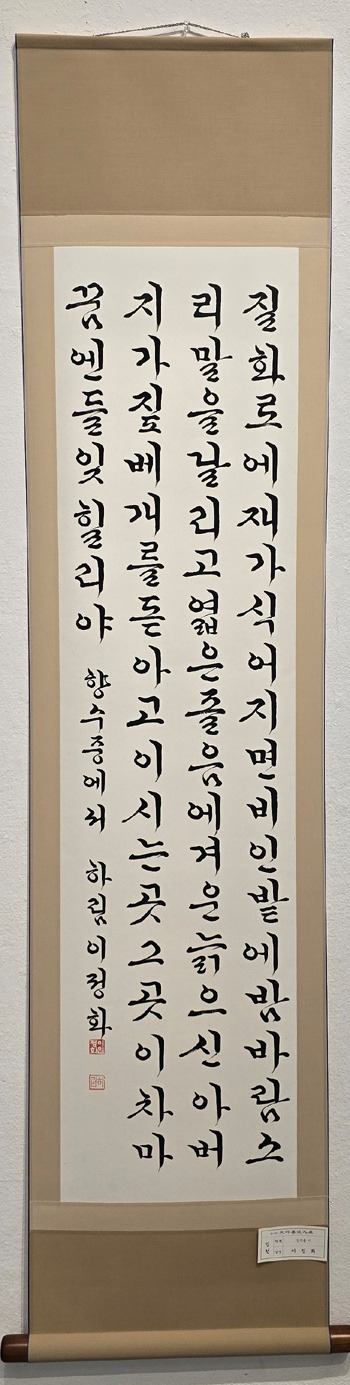 질화로에재가식어지면비인밭에밤바람소
리말을달리고엷은졸음에겨운늙으신아버
지가짚베개를돋아고이시는곳그곳이차마
꿈엔들잊힐리야 향수중에서 하림이정화
입선
이정화